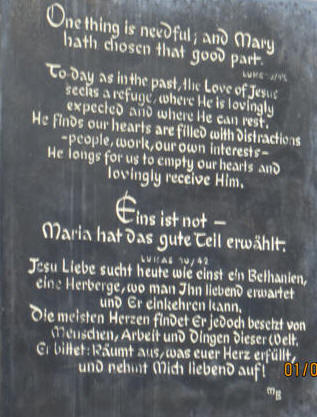 One thing is needful; and Mary
hath chosen that good part.
LUKE
To-day as in the past, the Love of Jesus
seeks a refuge, where He is lovingly
expected and where He can rest.
He finds our hearts are filled with distractions
-people, work, our own interests-
He longs for us to empty our hearts and
lovingly receive Him.
Eins ist not —
Maria hat das gute Teil erwählt.
LUKAS 10/42
Jesu Liebe sucht heute wie einst ein Bethanien,
eine Herberge, wo man Ihn liebend erwartet
und Er einkehren kann.
Die meisten Herzen findet Er jedoch besetzt von
Menschen, Arbeit und Dingen dieser Welt.
Er bittet: Räumt aus, was euer Herz erfüllt,
und nehmt Mich liebend auf!
MB
01/0